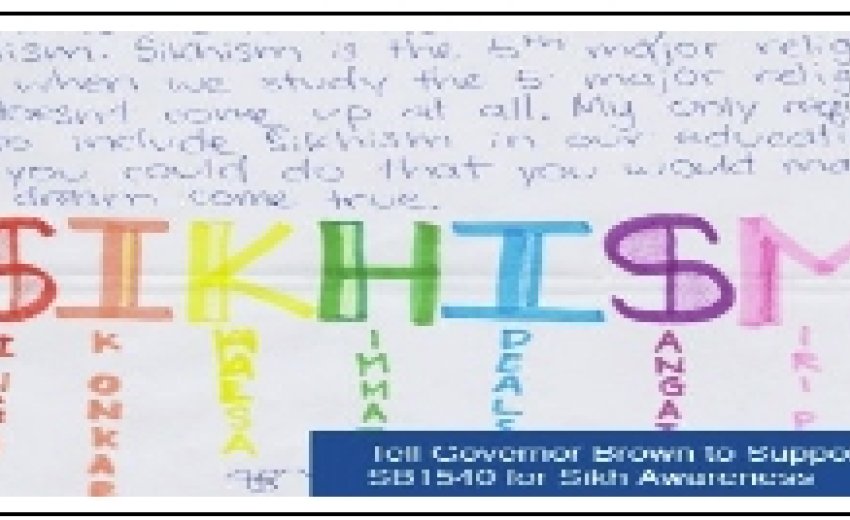 ism. Sikhism is the 5th major relig
when we study the 5 major relig
doesnt come up at all. My only req
o include Sikhism in our educati
you could do that you would ma
dream come true.
SIKHISM
K ONKAR
HALSA
IMMA
DEALS
ANGA
IRIP
Tell Governor Brown to Suppo
SB1540 for Sikh Awareness